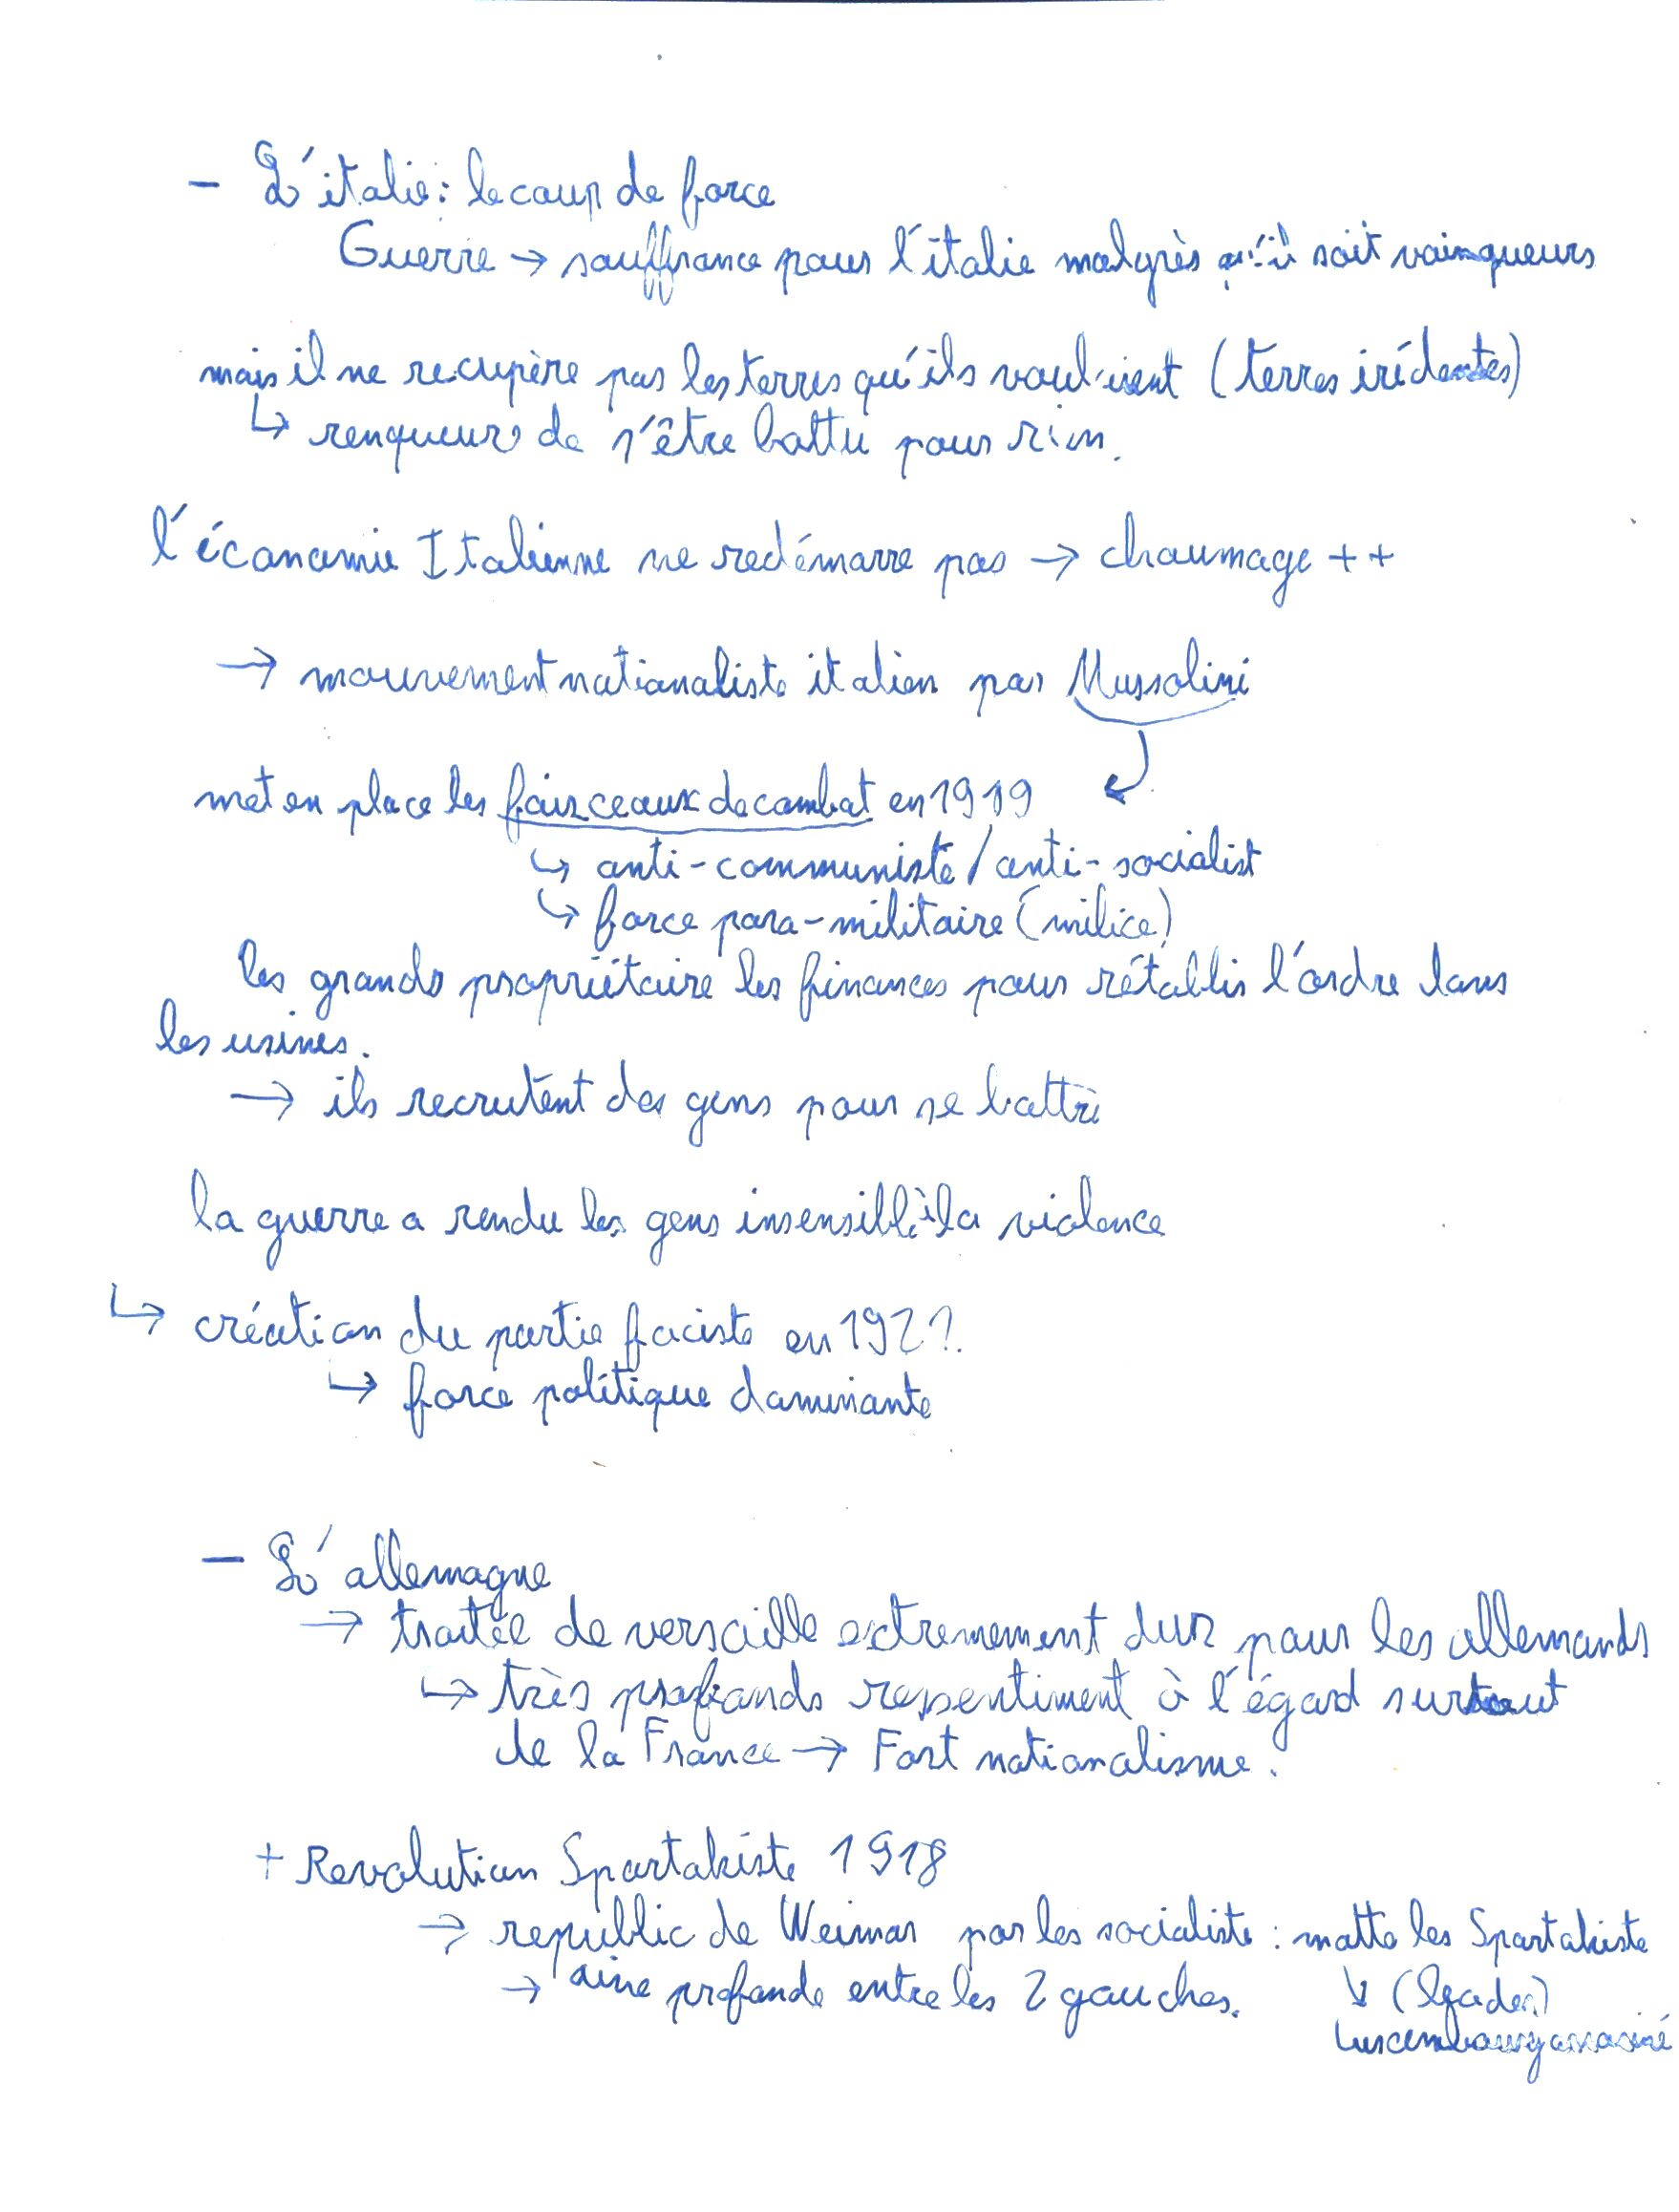 - L'italie : le coup de force
Guerre → souffrance pour l'italie malgrès qu'il soit vainqueurs
mais il ne recupère pas les terres qu'ils voulaient (terres irédentes)
↳ renqueurs de s'être battu pour rien.
l'économie Italienne ne redémarre pas → chaumage ++
→ mouvement nationaliste italien par Mussolini
met en place les faisceaux de combat en 1919
↳ anti-communiste / anti-socialist
↳ force para-militaire (milice)
les grands propriétaire les finances pour rétablir l'ordre dans
les usines.
→ ils recrutent des gens pour se battre
la guerre a rendu les gens insensible à la violence
↳ création du partie faciste en
↳ force politique dominante
- L'allemagne
→ traitée de versaille extremement dur pour les allemands
↳ très profonds ressentiment à l'égard surtout
de la France → Fort nationalisme.
+ Revolution Spartakiste 1918
→ republic de Weimar par les socialiste : matte les Spartakiste
→ aine profonde entre les 2 gauches. ↘ (leader)
Luxembourg assasiné